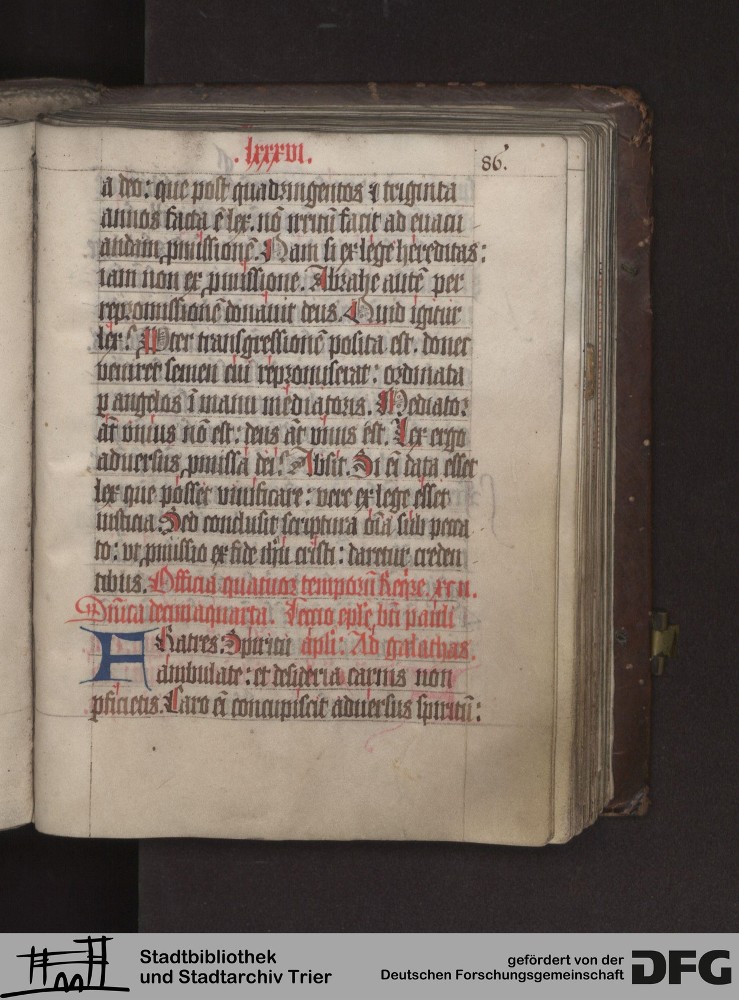 . lxxxvi.
86.
a deo: que post quadringentos ⁊ triginta
annos facta ē lex. nō irritū facit ad euacu
andam ꝓmissionē. Nam si ex lege hereditas:
iam non ex ꝓmissione. Abrahe autē per
repromissionē donauit deus. Quid igitur
lex? Pter transgressionē posita est. donec
veniret semen cui repromiserat: ordinata
ꝑ angelos ī manu mediatoris. Mediator
aūt vnius nō est: deus aūt vnus est. Lex ergo
aduersus ꝓmissa dei? Absit. Si eī data esset
lex que posset viuificare: vere ex lege esset
iusticia. Sed conclusit scriptura oīa sub pecca
to: vt ꝓmissio ex fide ihū cristi: daretur creden
tibus. Officia quatuor temporū Reqre. xcii.
Dn̄ica decimaquarta. Lectio eplē bt̄i pauli
FRatres: Spiritu apli: Ad galathas.
ambulate: et desideria carnis non
ꝑficietis. Caro eī concupiscit aduersus spiritū:
Stadtbibliothek
und Stadtarchiv Trier
gefördert von der
Deutschen Forschungsgemeinschaft
DFG